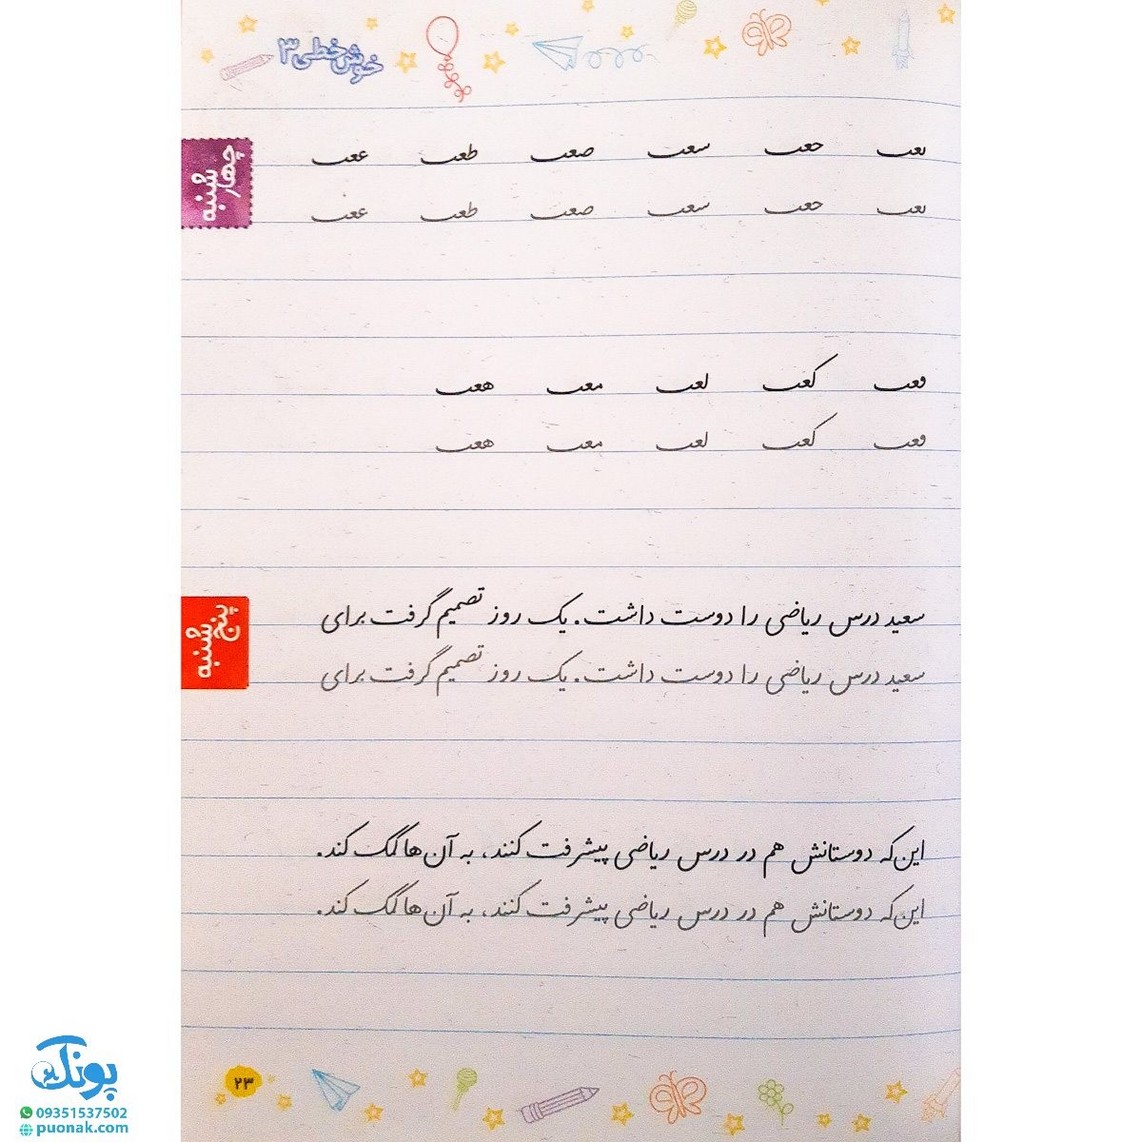 خوش‌خطی ۳
چهارشنبه
ىعٮ حعٮ سعٮ صعٮ طعٮ ععٮ
ىعٮ حعٮ سعٮ صعٮ طعٮ ععٮ
ڡعٮ کعٮ لعٮ معٮ هعٮ
ڡعٮ کعٮ لعٮ معٮ هعٮ
پنج‌شنبه
سعید درس ریاضی را دوست داشت. یک روز تصمیم گرفت برای
سعید درس ریاضی را دوست داشت. یک روز تصمیم گرفت برای
این‌که دوستانش هم در درس ریاضی پیشرفت کنند، به آن‌ها کمک کند.
این‌که دوستانش هم در درس ریاضی پیشرفت کنند، به آن‌ها کمک کند.
۲۳
پونک
09351537502
puonak.com